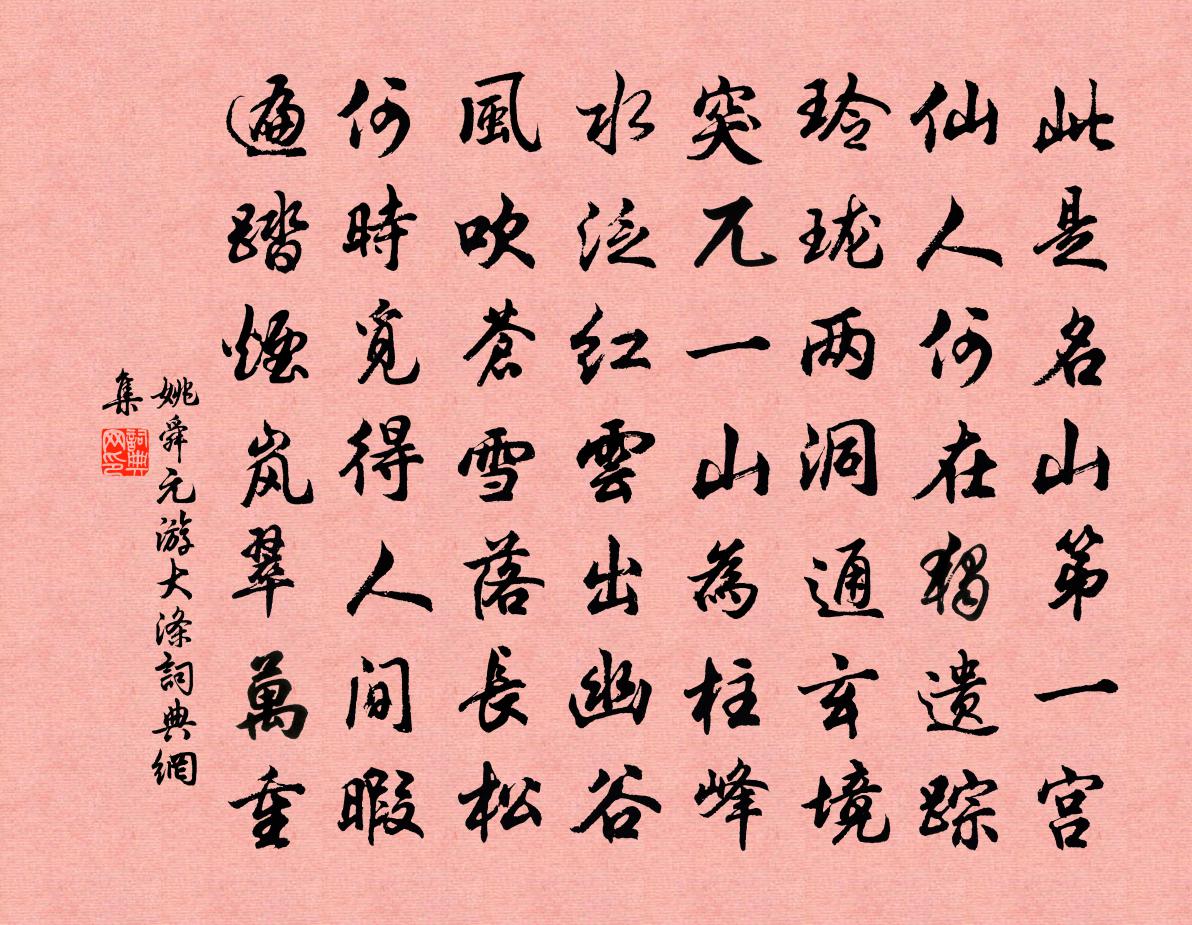 此是名山第一宫
仙人何在独遗踪
玲珑两洞通玄境
突兀一山為柱峰
水泛红雲出幽谷
風吹蒼雪落長松
何時覓得人间暇
遍踏煙岚翠萬重
姚舜元游大涤詞典網
集
詞典网印